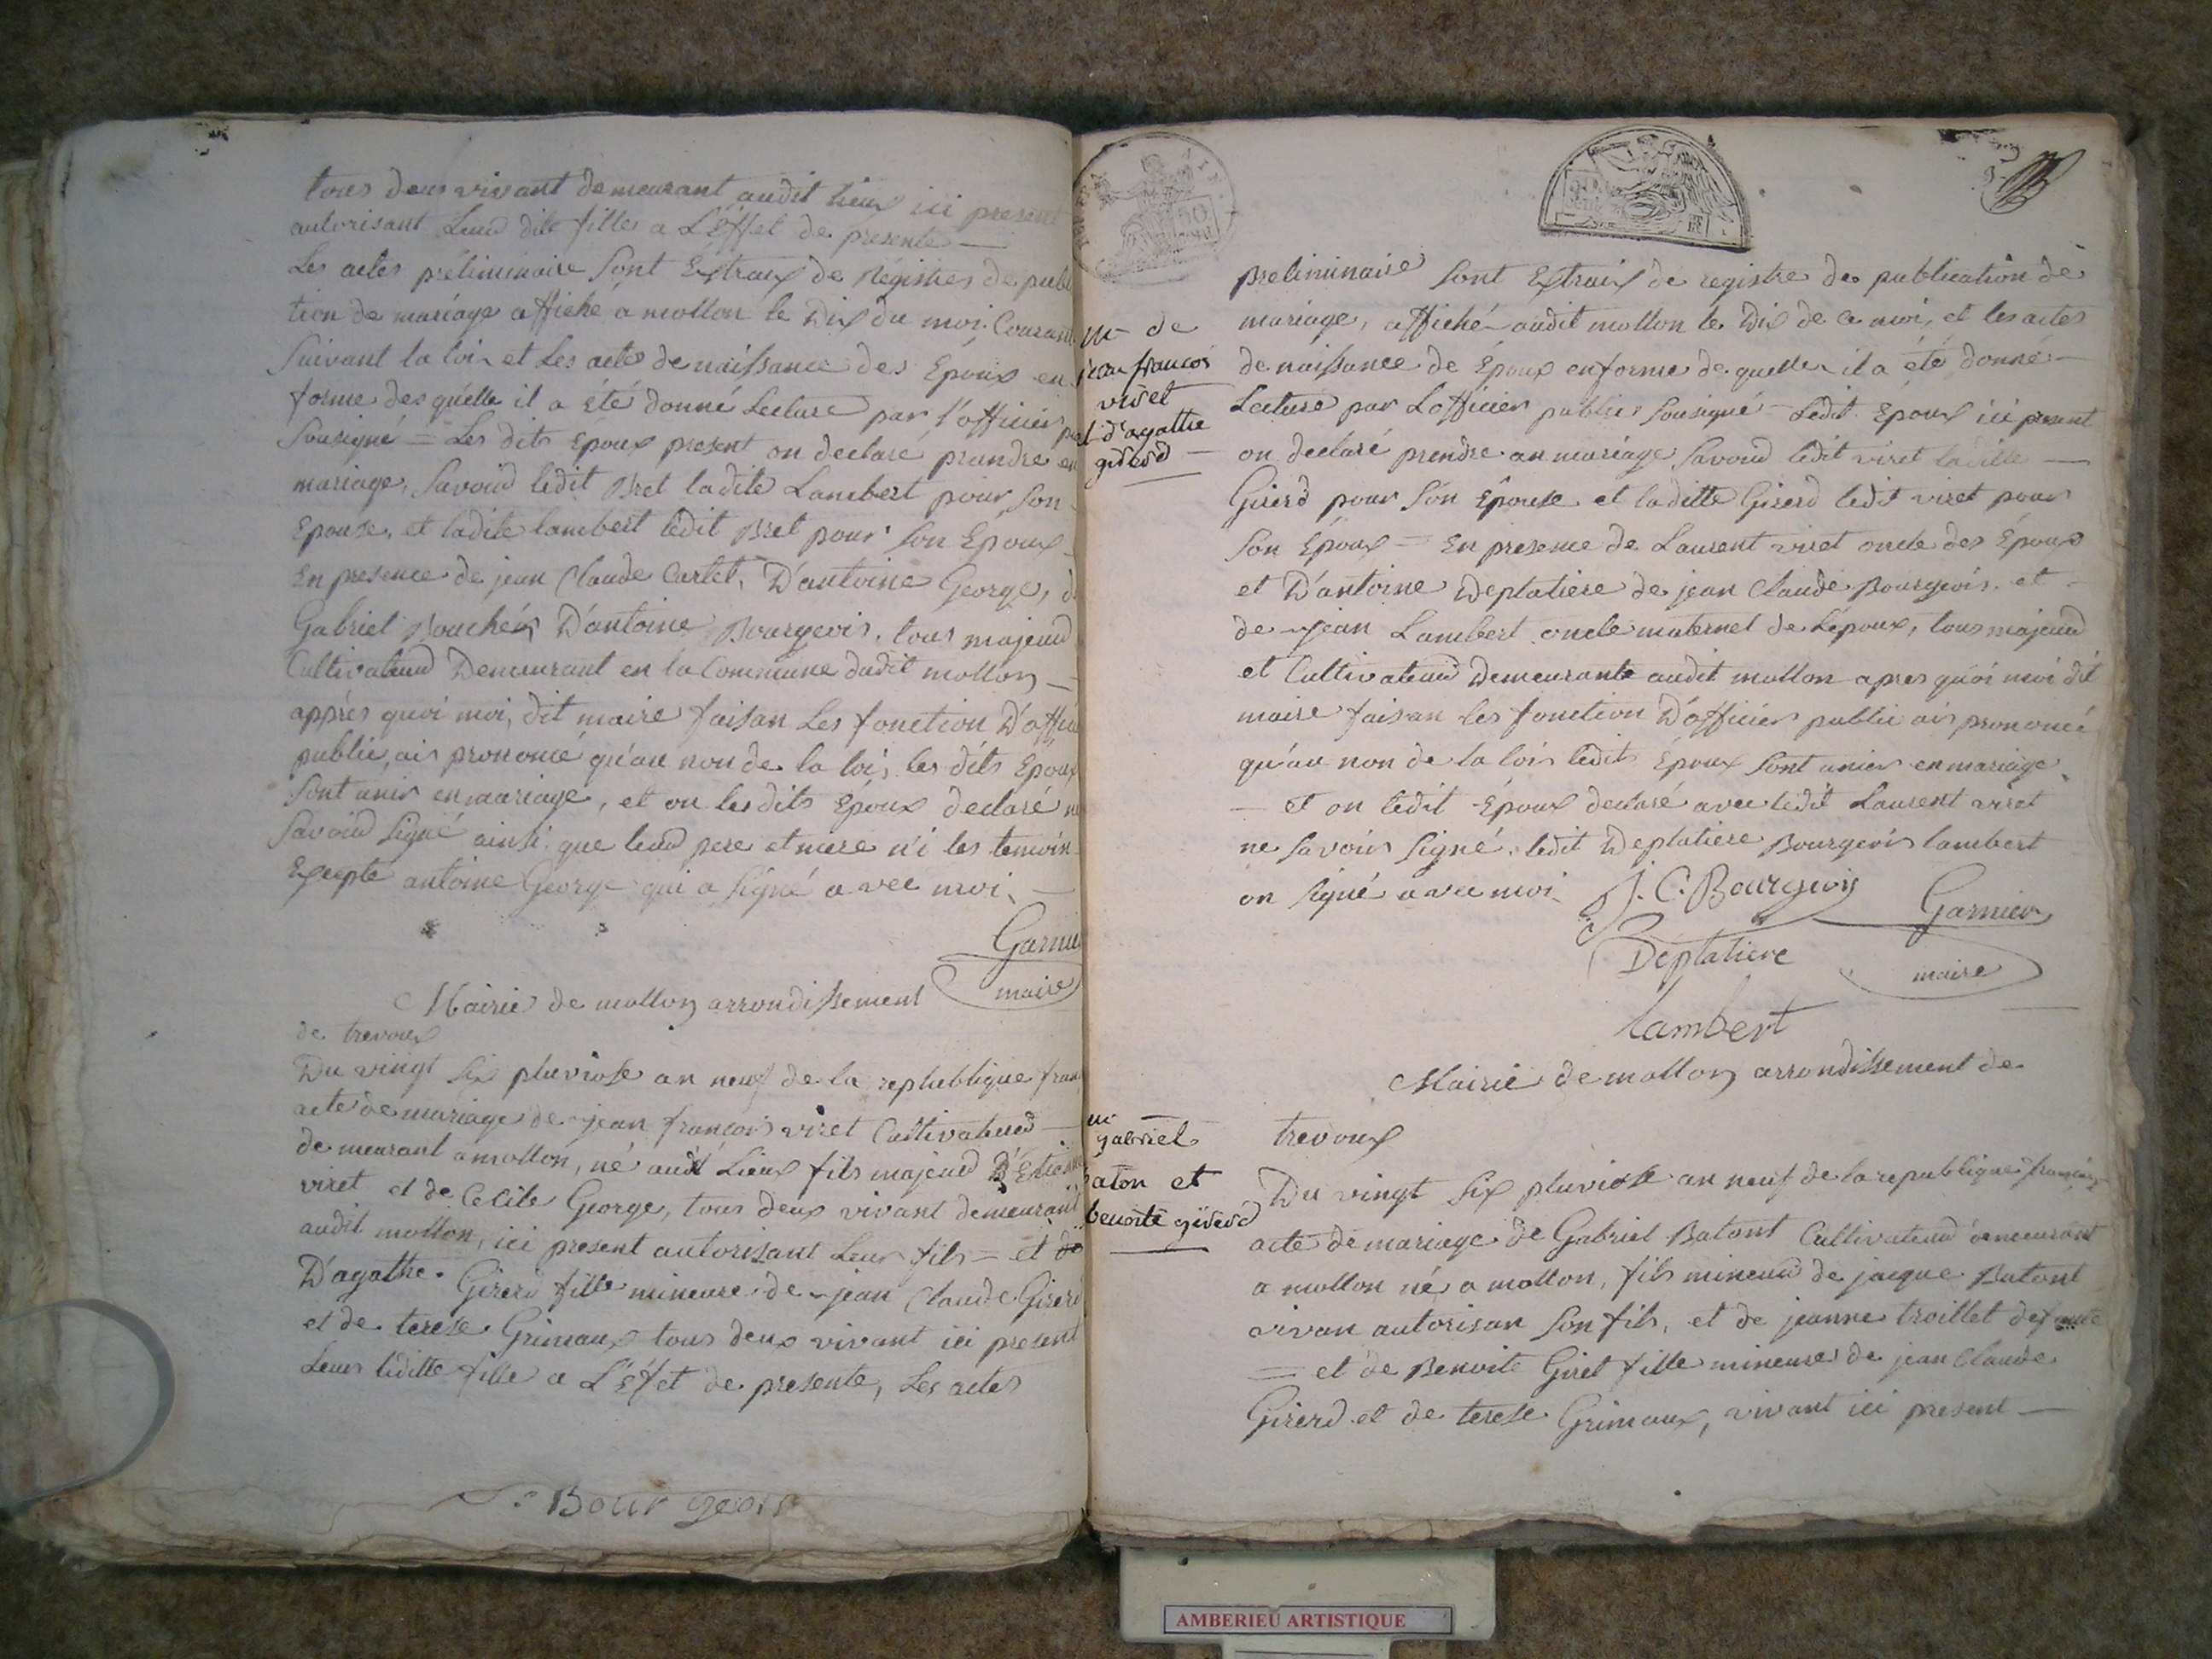 tous deus vivant demeurant audit lieux ici present
autorisant Leur dite filles a L'Effet de presente —
Les actes préliminaire Sont Extraix de Régistres de publi
tion de mariage affiché a mollon le Dix du moi Courant
Suivant la loi et Les acte de naissance des Epoux en
forme des quélle il a été donné Lecture par l'officier
Sousigné = Les dits Epoux present on declaré prendre en
mariage, Savoird ledit Bret ladite Lambert pour Son
Epouse, et ladite lambert ledit Bret pour Son Epoux
En presence de jean Claude Cartet, D'antoine George, d
Gabriel Bouchér, D'antoine Bourgeois, tous majeurd
Cultivateurd Demeurant en la Commune dudit mollon —
apprés quoi moi, dit maire faisan Les fonction D'offici
public, ais prononcé qu'au non de la loi, les dits Epoux
Sont unis en mariage, et on les dits Epoux declaré n
Savoird Signé ainsi que leurd pere et mere n'i les temoin
Exepte antoine George qui a Signé avec moi. —
Garnie
maire
Mairie de mollon arrondissement
de trevoux
Du vingt Six pluviose an neuf de la republique fran
acte de mariage de jean françois viret Cultivateurd —
demeurant a mollon, né audit Lieux fils majeurd D'Etienne
viret et de Cecile George, tous deux vivant demeurant
audit mollon, ici present autorisant Leur fils = et de
D'agathe Girerd fille mineure de jean Claude Girerd
et de terese Grimaux tous deux vivant ici present
Leur liditte fille a L'Éfet de presente, Les actes
Bourgeois
m de
jean francois
viret
et d'agathe
girerd —
preliminaire Sont Extraix de registre de publication de
mariage, affiché audit mollon le Dix de ce moi, et les actes
de naissance de Époux en forme de quelle il a été donné —
Lecture par Lofficier publier Sousigné = Ledit Epoux ici present
on declaré prendre an mariage Savoird ledit viret ladille —
Girerd pour Son Epouse et laditte Girerd ledit viret pour
Son Epoux = En presence de Laurent viret oncle des Époux
et D'antoine Deplatiere de jean Claude Bourgeois et
de jean Lambert oncle maternel de L'époux, tous majeurd
et Cultivateurd Demeurante audit mollon apres quoi moi dit
maire faisan les fonction D'officier public ais prononcé
qu'au non de la lois ledits Époux Sont unies en mariage.
— et on ledit Époux declaré avec ledit Laurent viret
ne Savoir Signé. ledit Deplatiere Bourgeois lambert
on Signé avec moi
J. C. Bourgeois
Garnier
Deplatiere
maire
Lambert
Mairie de mollon arrondissement de
m
gabriel
baton et
benoite girerd
trevoux
Du vingt Six pluviose an neuf de la republique française
acte de mariage de Gabriel Batont Cultivateurd demeurant
a mollon né a mollon, fils mineurd de jacque Batont
vivan autorisan Son fils, et de jeanne troillet defunte
= et de Benoite Giret fille mineure de jean Claude
Girerd et de terese Grimaux, vivant ici present —
AMBERIEU ARTISTIQUE